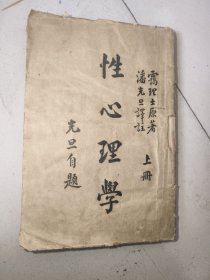 靄理士原著
潘光旦譯註
上冊
性心理學
光旦自題